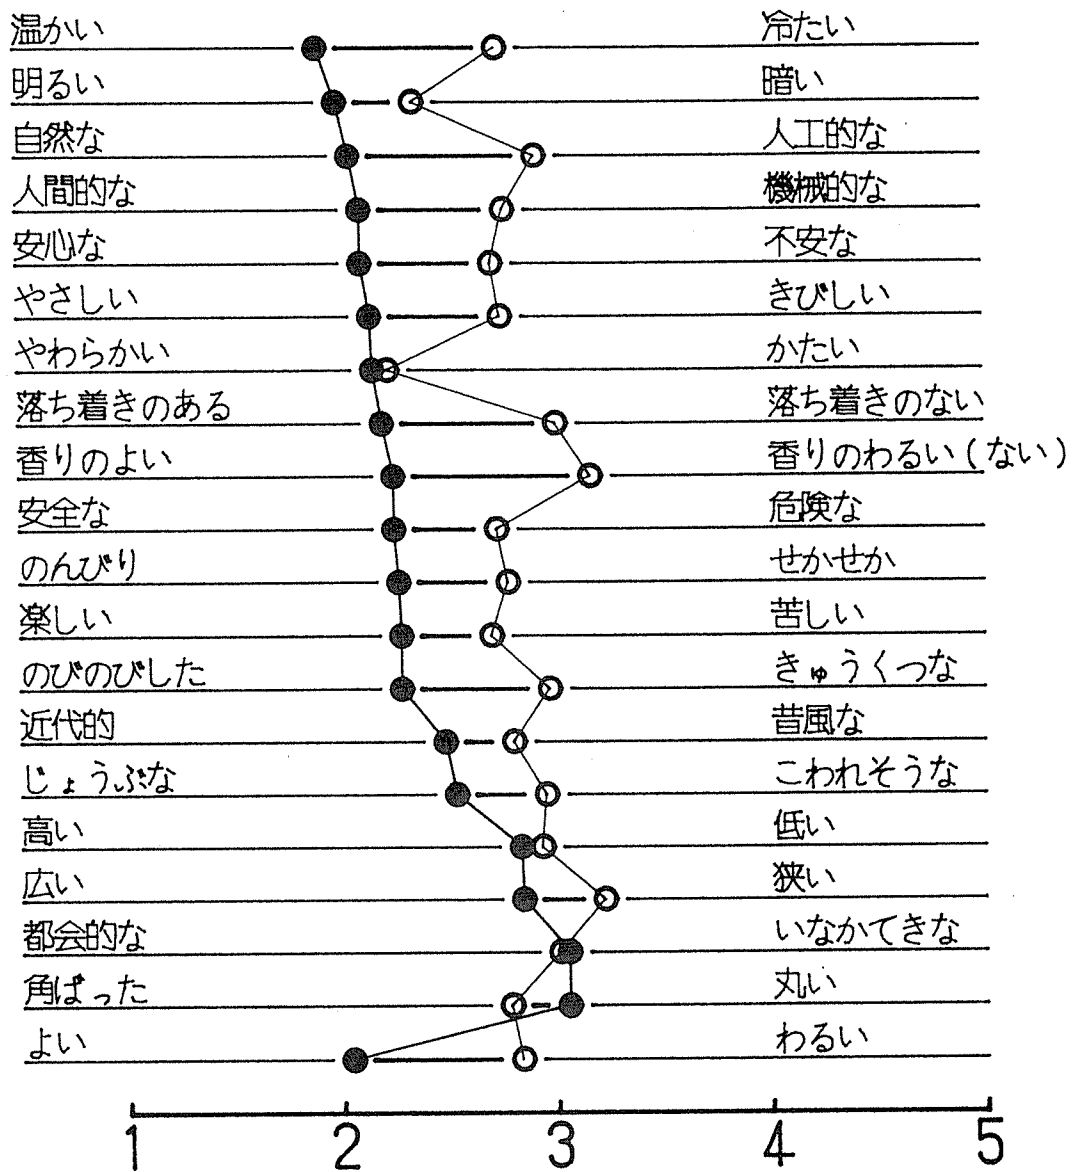 温かい 冷たい
明るい 暗い
自然な 人工的な
人間的な 機械的な
安心な 不安な
やさしい きびしい
やわらかい かたい
落ち着きのある 落ち着きのない
香りのよい 香りのわるい(ない)
安全な 危険な
のんびり せかせか
楽しい 苦しい
のびのびした きゅうくつな
近代的 昔風な
じょうぶな こわれそうな
高い 低い
広い 狭い
都会的な いなかてきな
角ばった 丸い
よい わるい
1 2 3 4 5